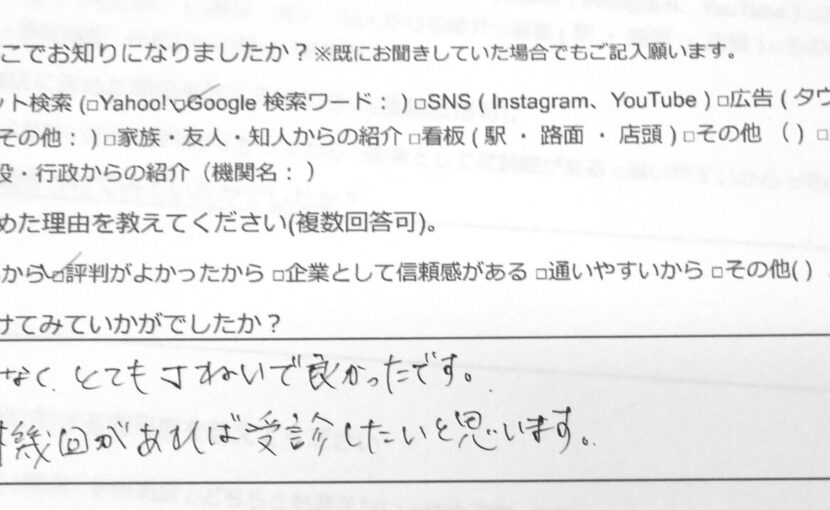 こでお知りになりましたか？※既にお聞きしていた場合でもご記入願います。
ット検索 (□Yahoo!□Google 検索ワード： ) □SNS ( Instagram、YouTube ) □広告 ( タウ
その他： ) □家族・友人・知人からの紹介 □看板 ( 駅 ・ 路面 ・ 店頭 ) □その他 ( ) □
設・行政からの紹介（機関名： ）
めた理由を教えてください(複数回答可)。
から □評判がよかったから □企業として信頼感がある □通いやすいから □その他( )
けてみていかがでしたか？
なく、とてもきれいで良かったです。
機回があれば受診したいと思います。